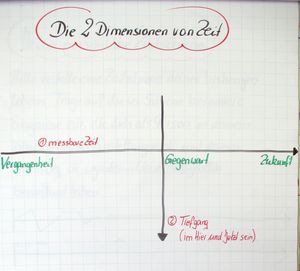 Die 2 Dimensionen von Zeit
① messbare Zeit
Vergangenheit
Gegenwart
Zukunft
② Tiefgang
(im Hier und Jetzt sein)